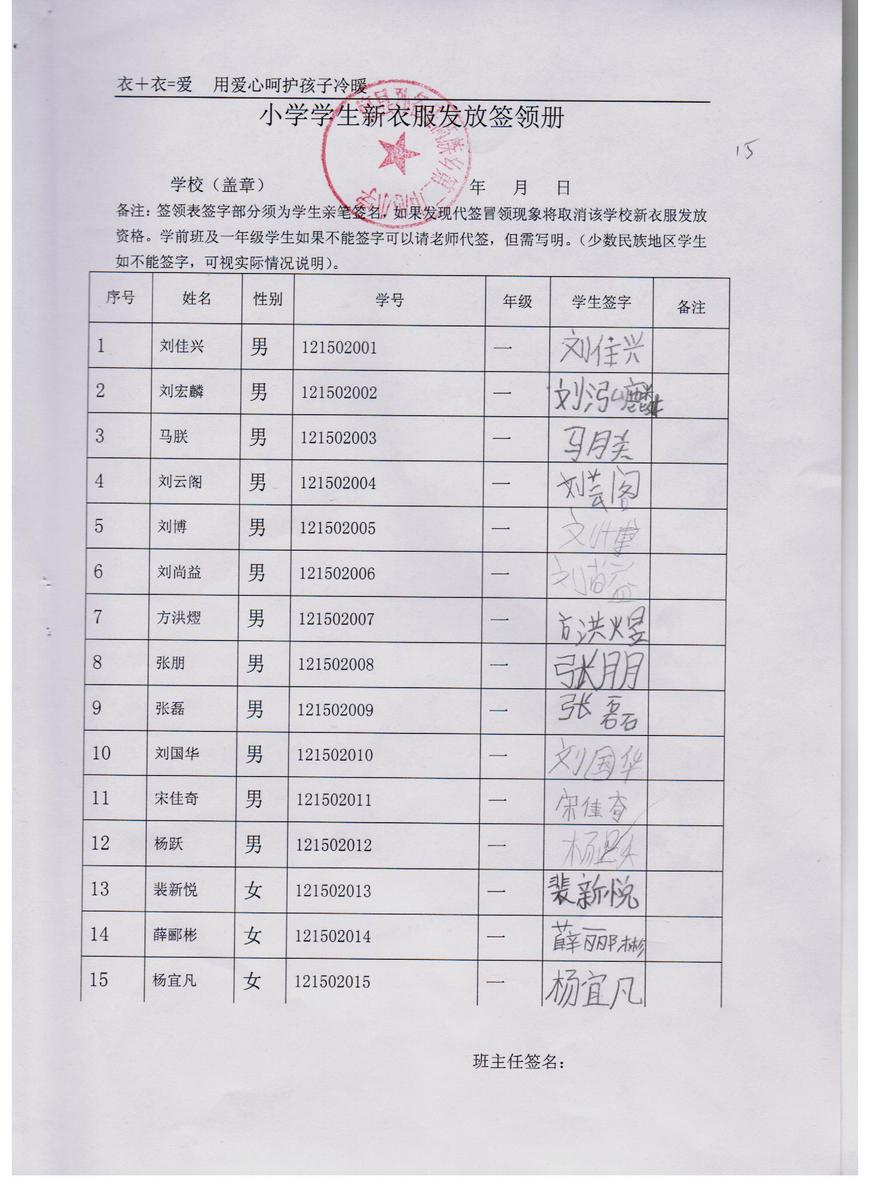 衣＋衣=爱 用爱心呵护孩子冷暖
小学学生新衣服发放签领册
15
学校（盖章） 年 月 日
备注：签领表签字部分须为学生亲笔签名，如果发现代签冒领现象将取消该学校新衣服发放
资格。学前班及一年级学生如果不能签字可以请老师代签，但需写明。（少数民族地区学生
如不能签字，可视实际情况说明）。
序号 姓名 性别 学号 年级 学生签字 备注
1 刘佳兴 男 121502001 一 刘佳兴
2 刘宏麟 男 121502002 一 刘
3 马朕 男 121502003 一 马
4 刘云阁 男 121502004 一 刘芸阁
5 刘博 男 121502005 一
6 刘尚益 男 121502006 一 刘尚益
7 方洪熠 男 121502007 一 方洪煜
8 张朋 男 121502008 一 张朋
9 张磊 男 121502009 一 张磊
10 刘国华 男 121502010 一 刘国华
11 宋佳奇 男 121502011 一 宋佳奇
12 杨跃 男 121502012 一 杨跃
13 裴新悦 女 121502013 一 裴新悦
14 薛郦彬 女 121502014 一 薛郦彬
15 杨宜凡 女 121502015 一 杨宜凡
班主任签名：